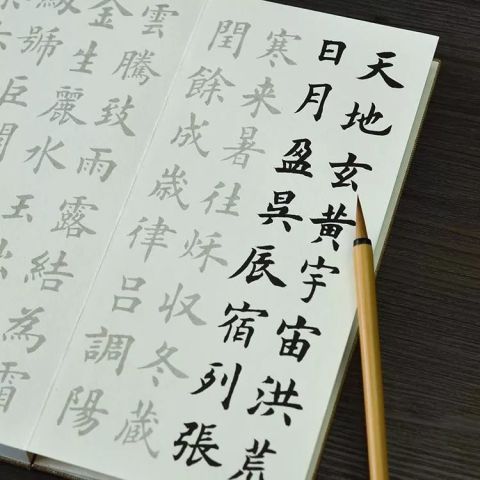 天地玄黃宇宙洪荒
日月盈昃辰宿列張
寒来暑往秋収冬蔵
閏餘成歲律呂調陽
雲騰致雨露結為霜
金生麗水玉出
號巨